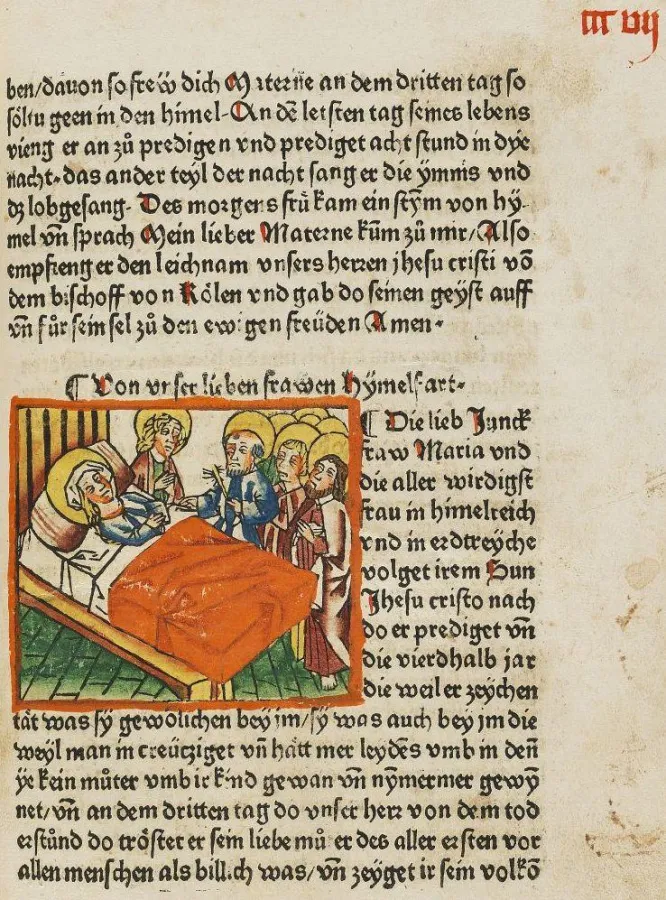 m vij
ben/dauon so frew dich Materne an dem dritten tag so
söltu geen in den himel. An dē letsten tag seines lebens
vieng er an zů predigen vnd prediget acht stund in dye
nacht. das ander teyl der nacht sang er die ymnis vnd
dz lobgesang. Des morgens frů kam ein stym̄ von hy-
mel vn̄ sprach Mein lieber Materne kum̄ zů mir/Also
empfieng er den leichnam vnsers herren jhesu cristi vō
dem bischoff von Kölen vnd gab do seinen geyst auff
vn̄ fůr sein sel zů den ewigen freüden Amen.
¶ Von vnser lieben frawen hymelfart.
¶ Die lieb Junck
fraw Maria vnd
die aller wirdigst
frau in himelreich
vnd in erdtreyche
volget irem Sun
Jhesu cristo nach
do er prediget vn̄
die vierdhalb jar
die weil er zeychen
tät was sy gewölichen bey im/sy was auch bey jm die
weyl man in creütziget vn̄ hatt mer leydēs vmb in den̄
ye kein můter vmb ir kind gewan vn̄ nym̄ermer gewyn̄
net/vn̄ an dem dritten tag do vnser herr von dem tod
erstůnd do tröstet er sein liebe můter des aller ersten vor
allen menschen als billich was/vn̄ zeyget ir sein volkō